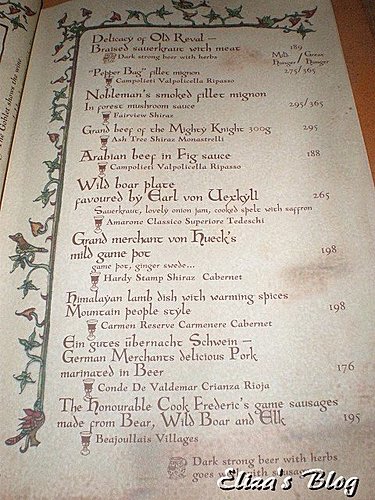 Delicacy of Old Reval –
Braised sauerkraut with meat 189
Dark strong beer with herbs
Mild Hunger / Great Hunger
"Pepper Bag" fillet mignon 275/365
Campolieti Valpolicella Ripasso
Nobleman's smoked fillet mignon
In forest mushroom sauce 295/365
Fairview Shiraz
Grand beef of the Mighty Knight 300g 295
Ash Tree Shiraz Monastrell
Arabian beef in Fig sauce 188
Campolieti Valpolicella Ripasso
Wild boar plate
favoured by Earl von Uexkyll 265
Sauerkraut, lovely onion jam, cooked spelt with saffron
Amarone Classico Superiore Tedeschi
Grand merchant von Hueck's
mild game pot 198
game pot, ginger swede...
Hardy Stamp Shiraz Cabernet
Himalayan lamb dish with warming spices
Mountain people style 198
Carmen Reserve Carmenere Cabernet
Ein gutes übernacht Schwein –
German Merchants delicious Pork
marinated in Beer 176
Conde De Valdemar Crianza Rioja
The Honourable Cook Frederic's game sausages
made from Bear, Wild Boar and Elk 195
Beajoullais Villages
Dark strong beer with herbs
goes with sausages
Eliza's Blog